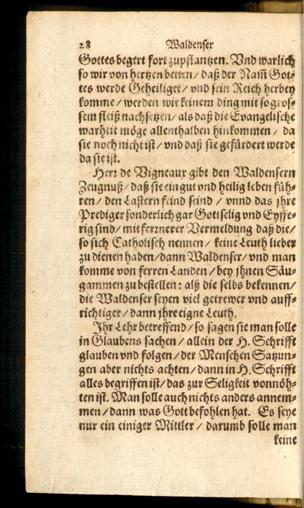 28 Waldenser
Gottes begert fort zupflantzen. Vnd warlich
so wir von hertzen betten / daß der Nam̃ Got⸗
tes werde Geheiliget / vnd sein Reich herbey
komme / werden wir keinem ding mit so gros⸗
sem fleiß nachsetzen / als daß die Evangelische
warheit möge allenthalben hinkommen / da
sie noch nicht ist / vnd daß sie gefürdert werde
da sie ist.
Herr de Vigneaux gibt den Waldensern
Zeugnuß / daß sie ein gut vnd heilig leben füh⸗
ren / den Lastern feind seind / vnnd das jhre
Prediger sonderlich gar Gottselig vnd Eyffe⸗
rig sind / mit fernerer Vermeldung daß die /
so sich Catholisch nennen / keine Leuth lieber
zu dienen haben / dann Waldenser / vnd man
komme von ferren Landen / bey jhnen Säu⸗
gammen zu bestellen: alß die selbs bekennen /
die Waldenser seyen viel getrewer vnd auff⸗
richtiger / dann jhre eigne Leuth.
Ihr Lehr betreffend / so sagen sie man solle
in Glaubens sachen / allein der H. Schrifft
glauben vnd folgen / der Menschen Satzun⸗
gen aber nichts achten / dann in H. Schrifft
alles begriffen ist / das zur Seligkeit vonnöh⸗
ten ist. Man solle auch nichts anders annem⸗
men / dann was Gott befohlen hat. Es seye
nur ein einiger Mittler / darumb solle man
keine